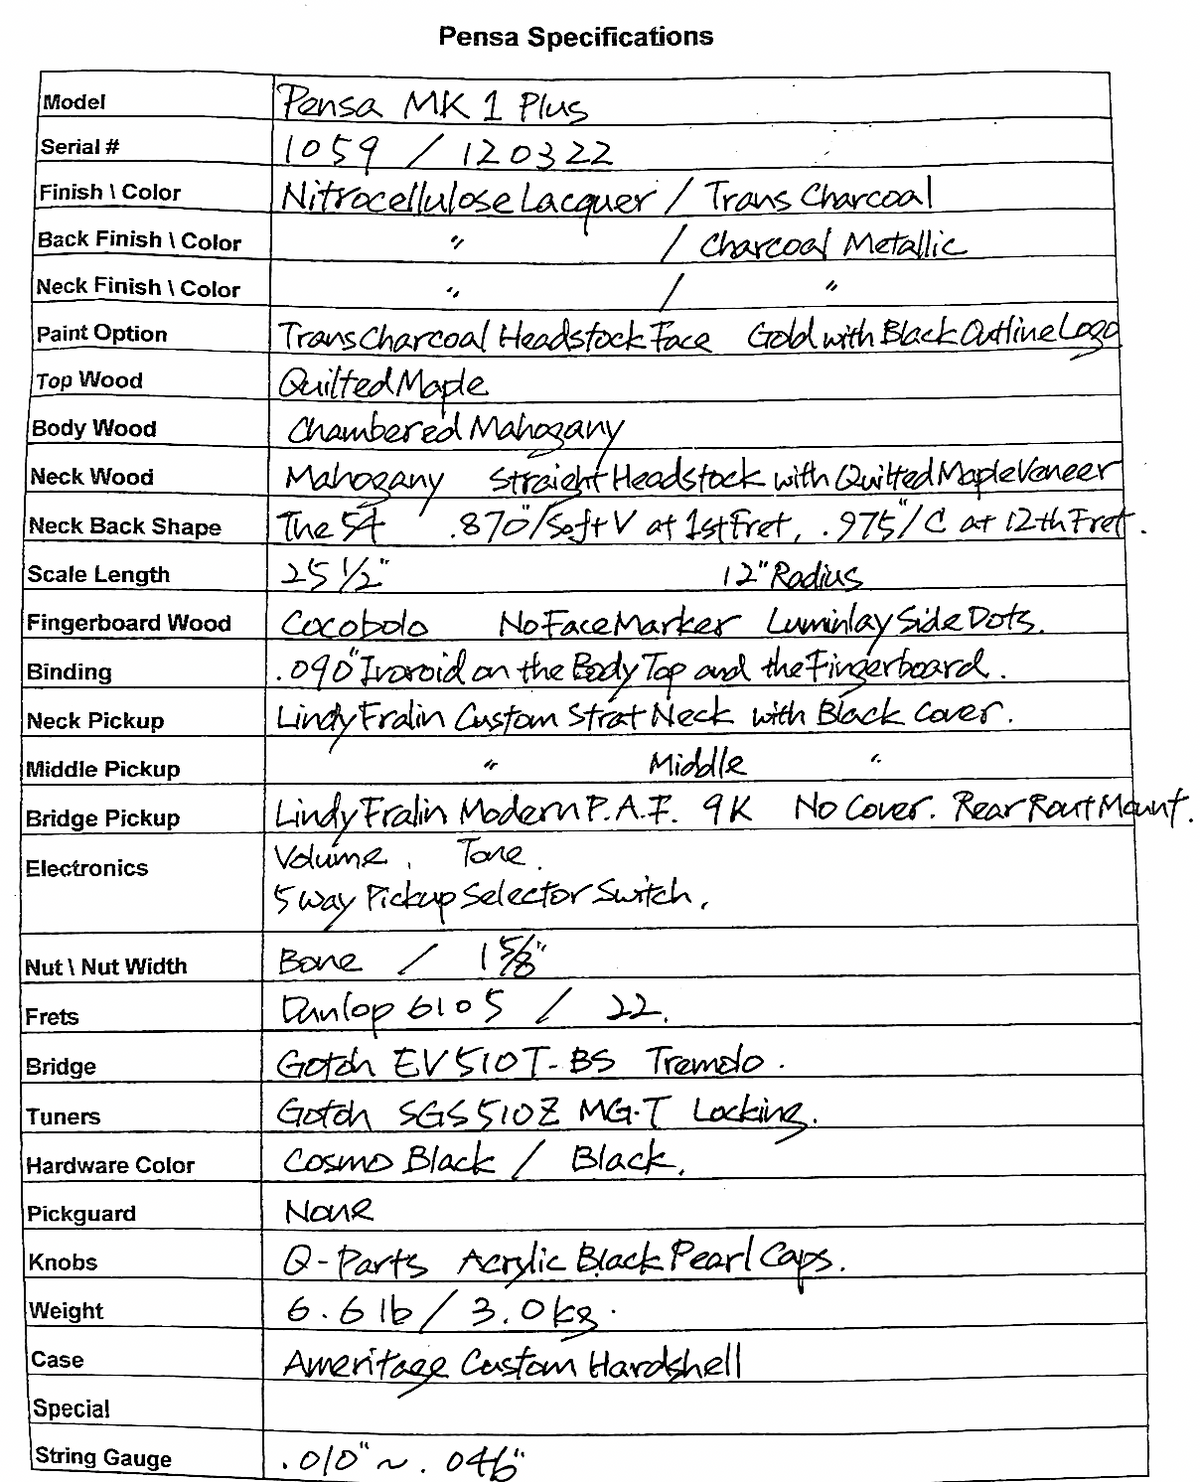 Pensa Specifications
Model Pensa MK 1 Plus
Serial # 1059 / 120322
Finish \ Color Nitrocellulose Lacquer / Trans Charcoal
Back Finish \ Color " / Charcoal Metallic
Neck Finish \ Color " / "
Paint Option Trans Charcoal Headstock Face Gold with Black Outline Logo
Top Wood Quilted Maple
Body Wood Chambered Mahogany
Neck Wood Mahogany Straight Headstock with Quilted Maple Veneer
Neck Back Shape The 54 .870"/Soft V at 1st Fret, .975"/C at 12th Fret.
Scale Length 25 1/2" 12" Radius
Fingerboard Wood Cocobolo No Face Marker Luminlay Side Dots.
Binding .090" Ivoroid on the Body Top and the Fingerboard.
Neck Pickup Lindy Fralin Custom Strat Neck with Black Cover.
Middle Pickup " Middle "
Bridge Pickup Lindy Fralin Modern P.A.F. 9K No Cover. Rear Rout Mount.
Electronics Volume, Tone.
5 way Pickup Selector Switch,
Nut \ Nut Width Bone / 1 5/8"
Frets Dunlop 6105 / 22.
Bridge Gotoh EV510T-BS Tremolo.
Tuners Gotoh SGS510Z MG-T Locking.
Hardware Color Cosmo Black / Black.
Pickguard None
Knobs Q-Parts Acrylic Black Pearl Caps.
Weight 6.6 lb / 3.0 kg.
Case Ameritage Custom Hardshell
Special
String Gauge .010" ~ .046"